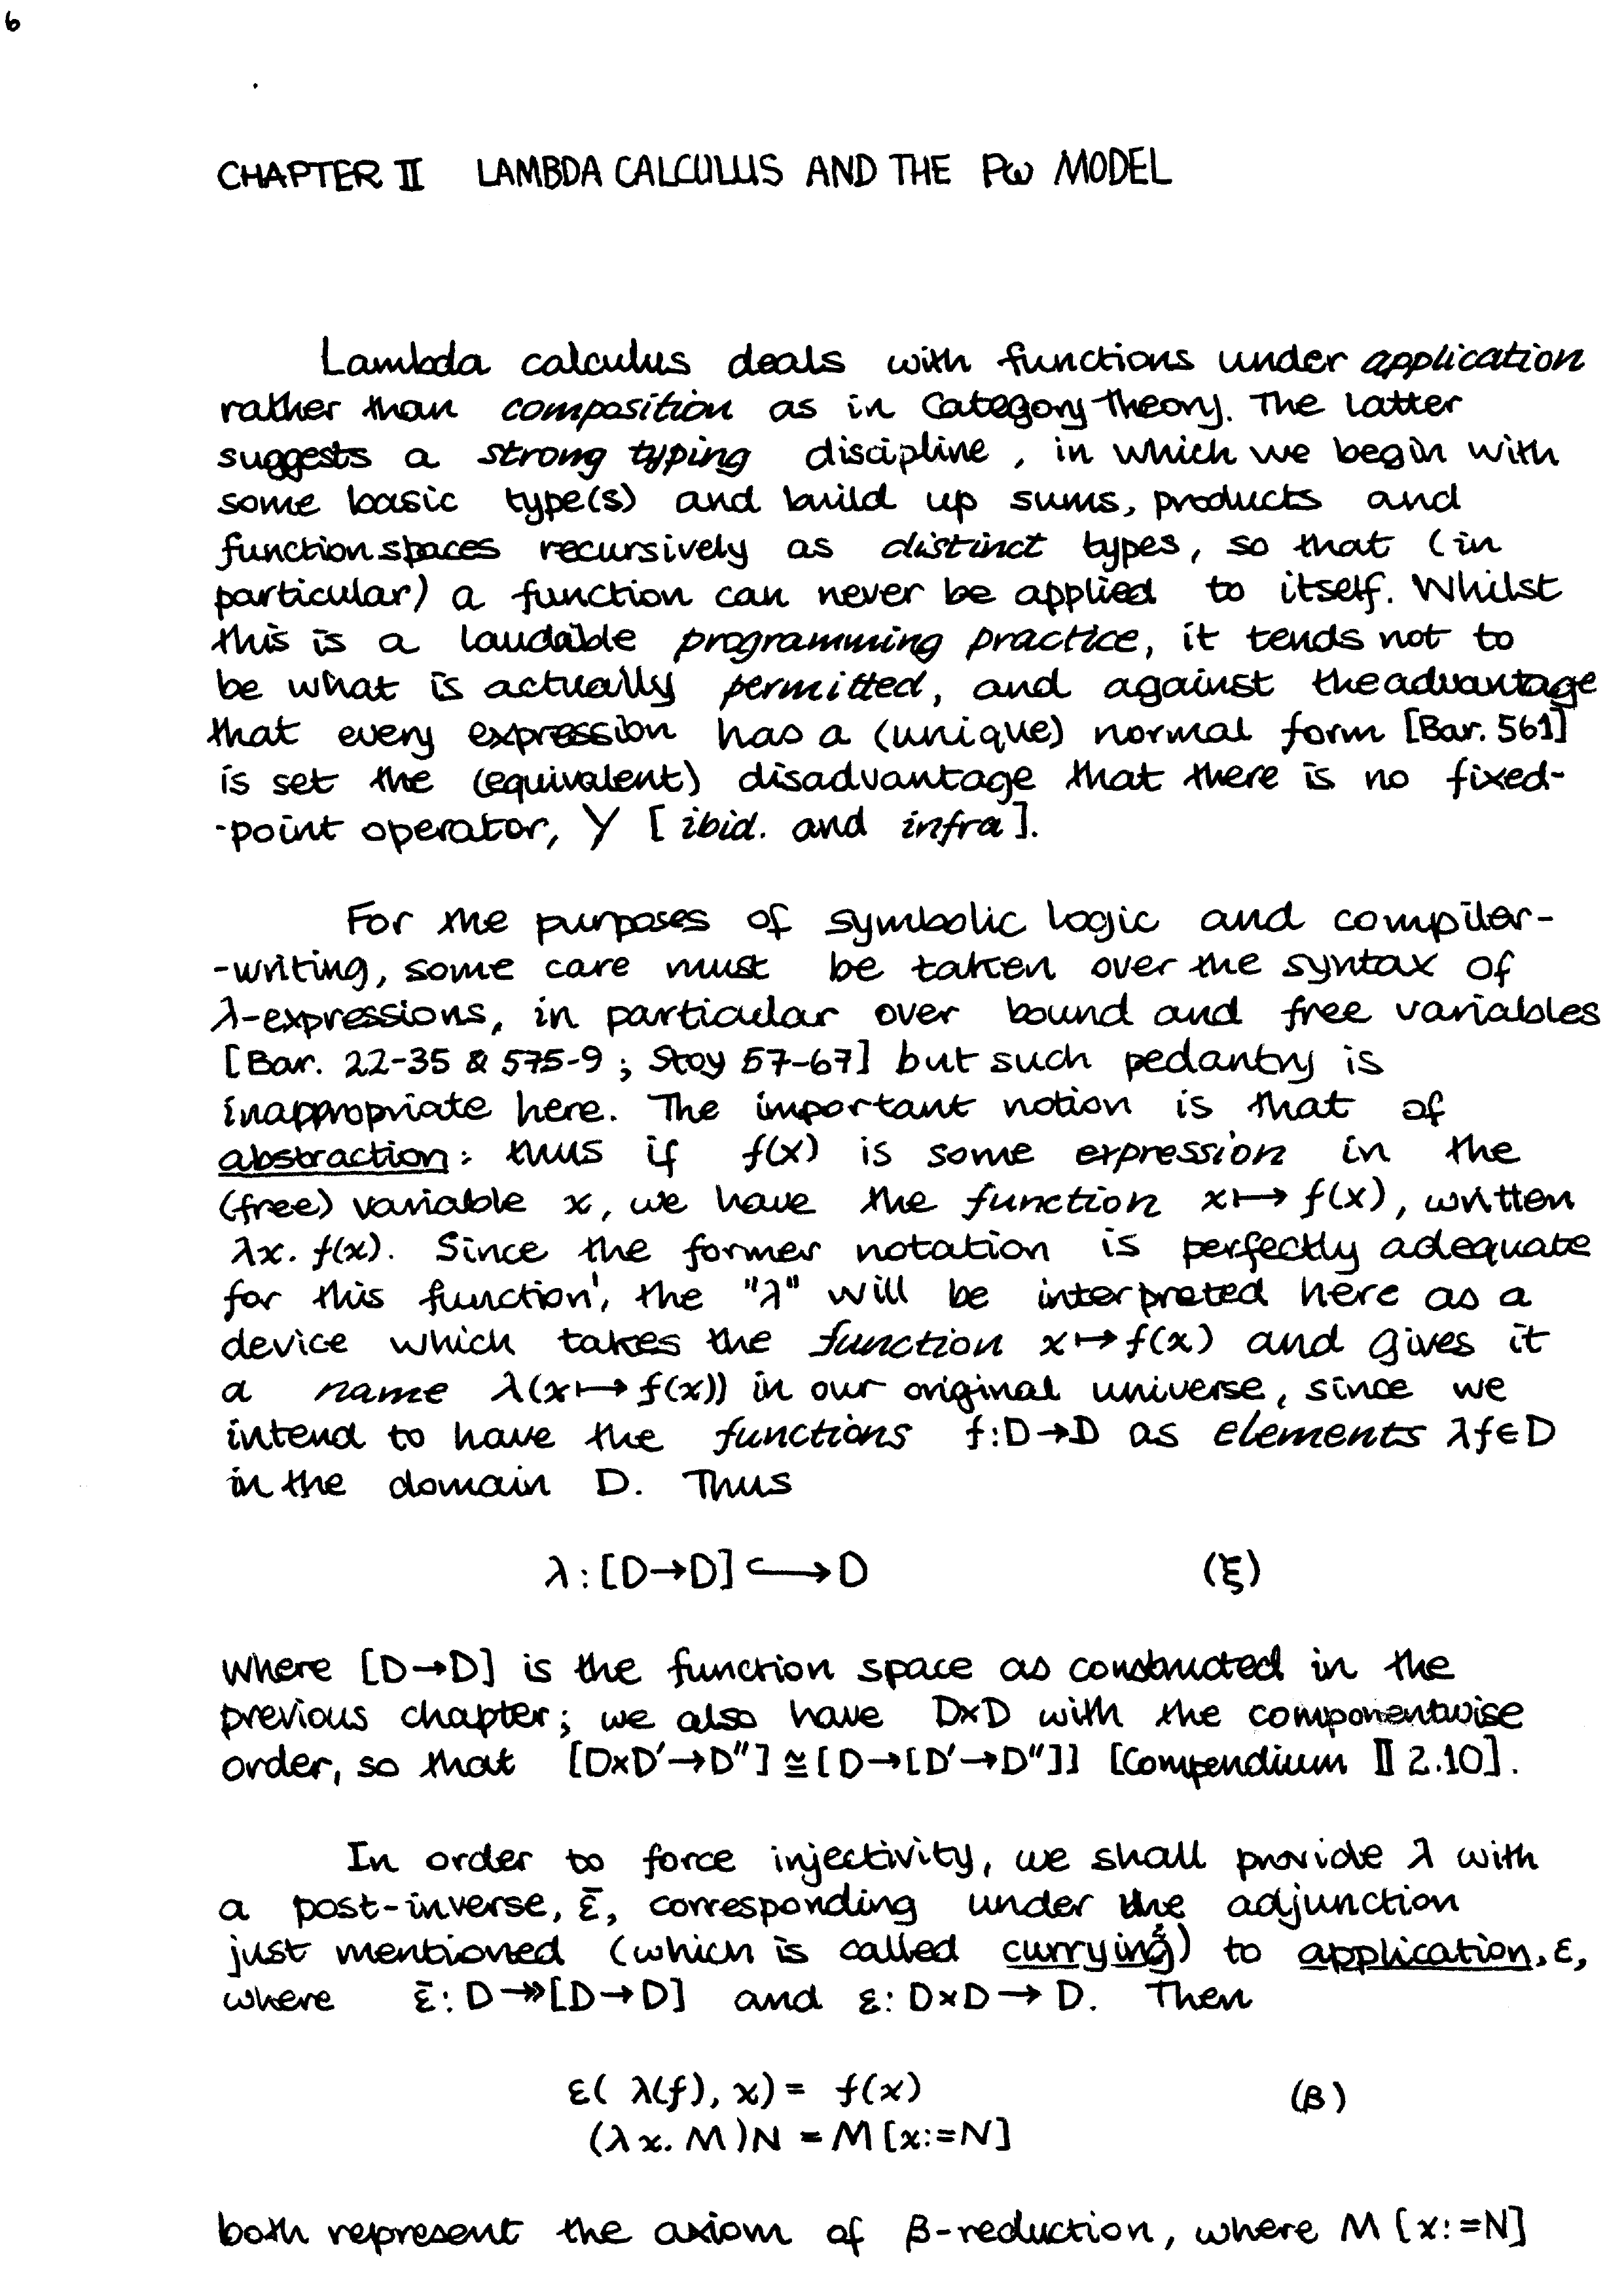 6
CHAPTER II LAMBDA CALCULUS AND THE Pω MODEL
Lambda calculus deals with functions under application
rather than composition as in Category Theory. The latter
suggests a strong typing discipline, in which we begin with
some basic type(s) and build up sums, products and
function spaces recursively as distinct types, so that (in
particular) a function can never be applied to itself. Whilst
this is a laudable programming practice, it tends not to
be what is actually permitted, and against the advantage
that every expression has a (unique) normal form [Bar. 561]
is set the (equivalent) disadvantage that there is no fixed-
-point operator, Y [ibid. and infra].
For the purposes of symbolic logic and compiler-
-writing, some care must be taken over the syntax of
λ-expressions, in particular over bound and free variables
[Bar. 22-35 & 575-9; Stoy 57-67] but such pedantry is
inappropriate here. The important notion is that of
abstraction: thus if f(x) is some expression in the
(free) variable x, we have the function x↦f(x), written
λx. f(x). Since the former notation is perfectly adequate
for this function', the "λ" will be interpreted here as a
device which takes the function x↦f(x) and gives it
a name λ(x↦f(x)) in our original universe, since we
intend to have the functions f:D→D as elements λf∈D
in the domain D. Thus
λ:[D→D]↪D (ξ)
where [D→D] is the function space as constructed in the
previous chapter; we also have D×D with the componentwise
order, so that [D×D'→D"]≅[D→[D'→D"]] [Compendium II 2.10].
In order to force injectivity, we shall provide λ with
a post-inverse, ε̄, corresponding under the adjunction
just mentioned (which is called currying²) to application, ε,
where ε̄:D↠[D→D] and ε:D×D→D. Then
ε(λ(f),x)= f(x) (β)
(λx.M)N = M[x:=N]
both represent the axiom of β-reduction, where M[x:=N]